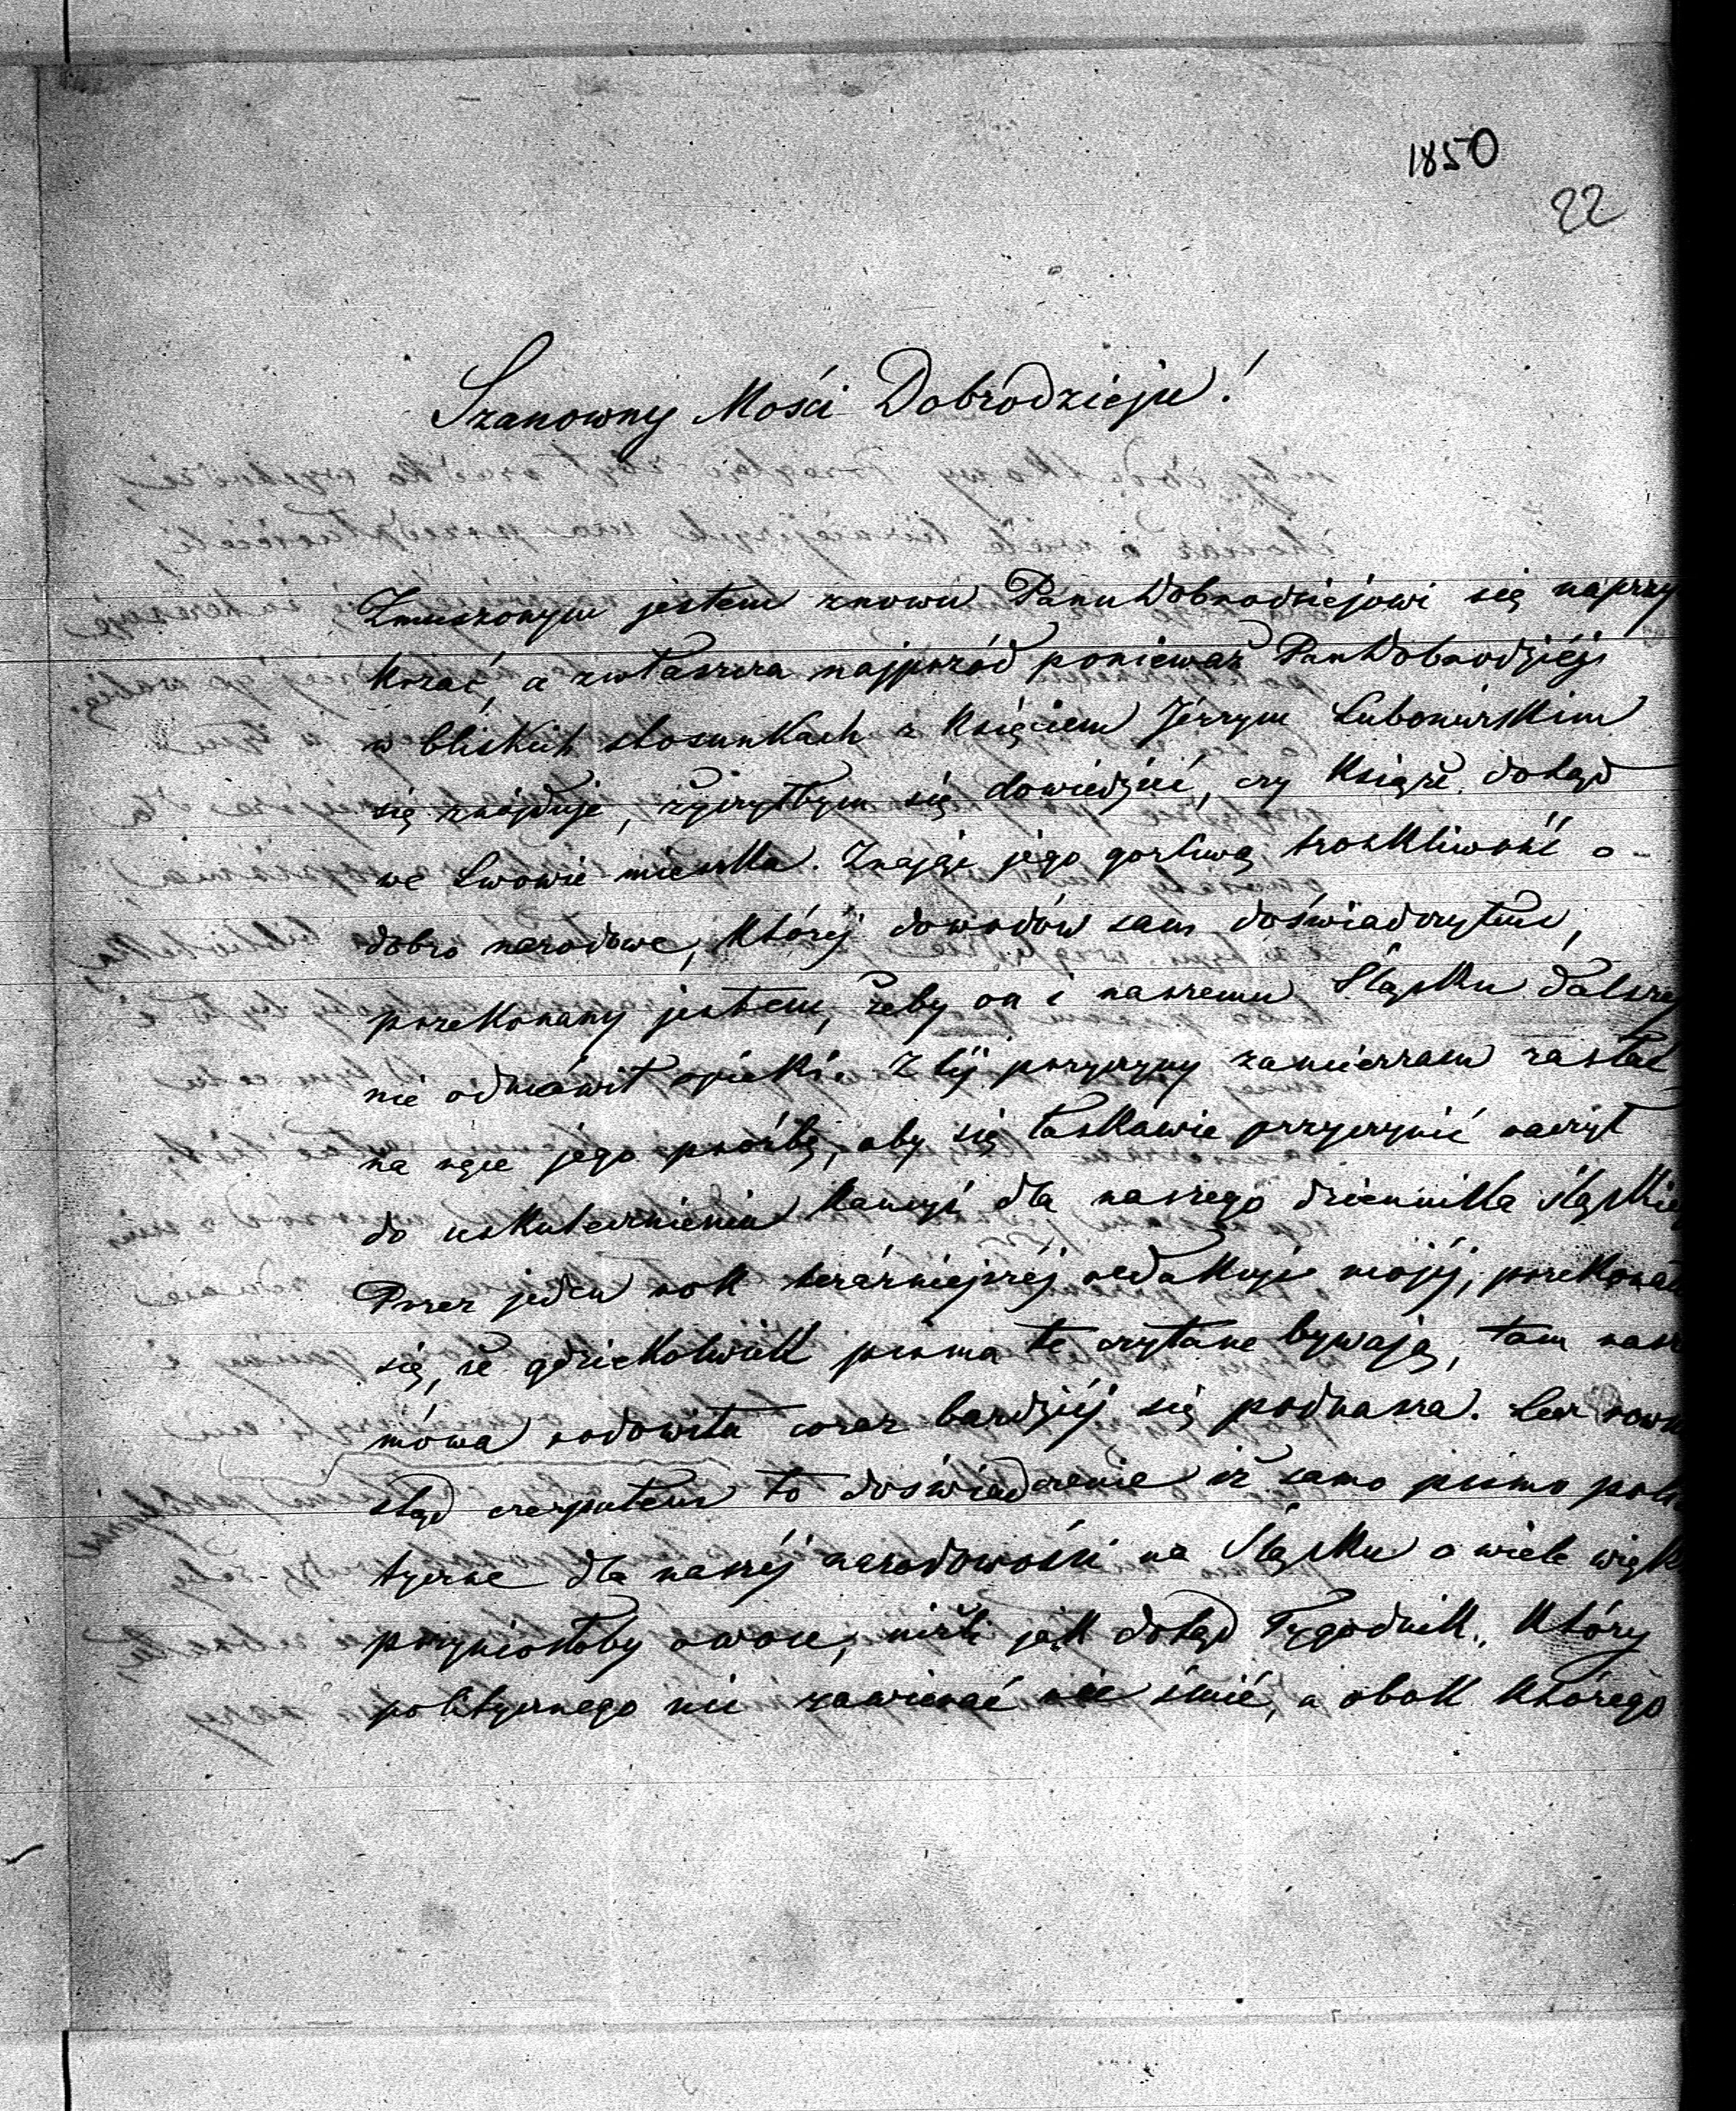 1850
22
Szanowny Mości Dobrodzieju!
Zmuszonym jestem znowu Panu Dobrodziejowi się naprzy
krzać, a zwłaszcza najprzód ponieważ Pan Dobrodziéj
w bliskich stosunkach z Księciem Jérzym Lubomirskim
się znajduje, życzyłbym się dowiedzieć, czy Książe dotąd
we Lwowie mieszka. Znając jego gorliwą troskliwość o
dobro narodowe, któréj dowodów sam doświadczyłem,
przekonany jestem, żeby on i naszemu Śląsku dalszej
nie odmówił opieki. Z téj przyczyny zamierzam zasłać
na ręce jego prośbę, aby się łaskawie przyczynić raczył
do uskutecznienia kaucyi dla naszego dziennika śląskie
Przez jeden rok teráźniejszéj redakcyi mojéj, przekona
się, że gdziekolwiek pisma te czytane bywają, tam nasz
mówa rodowita coraz bardziéj się podnasza. Lecz rown
stąd czerpałem to doświadczenie iż samo pismo poli
tyczne dla naszéj narodowości na Śląsku o wiele więk
przyniosłoby owoce, niżli jak dotąd Tygodnik, który
politycznego nic zawierać nie śmié, a obok którego